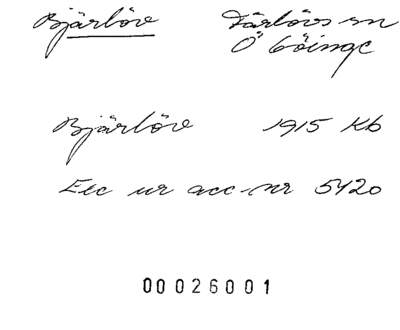 Bjärlöv Färlövs sn
Ö Göinge
Bjärlöv 1915 Kb
Exc ur acc-nr 5420
00026001